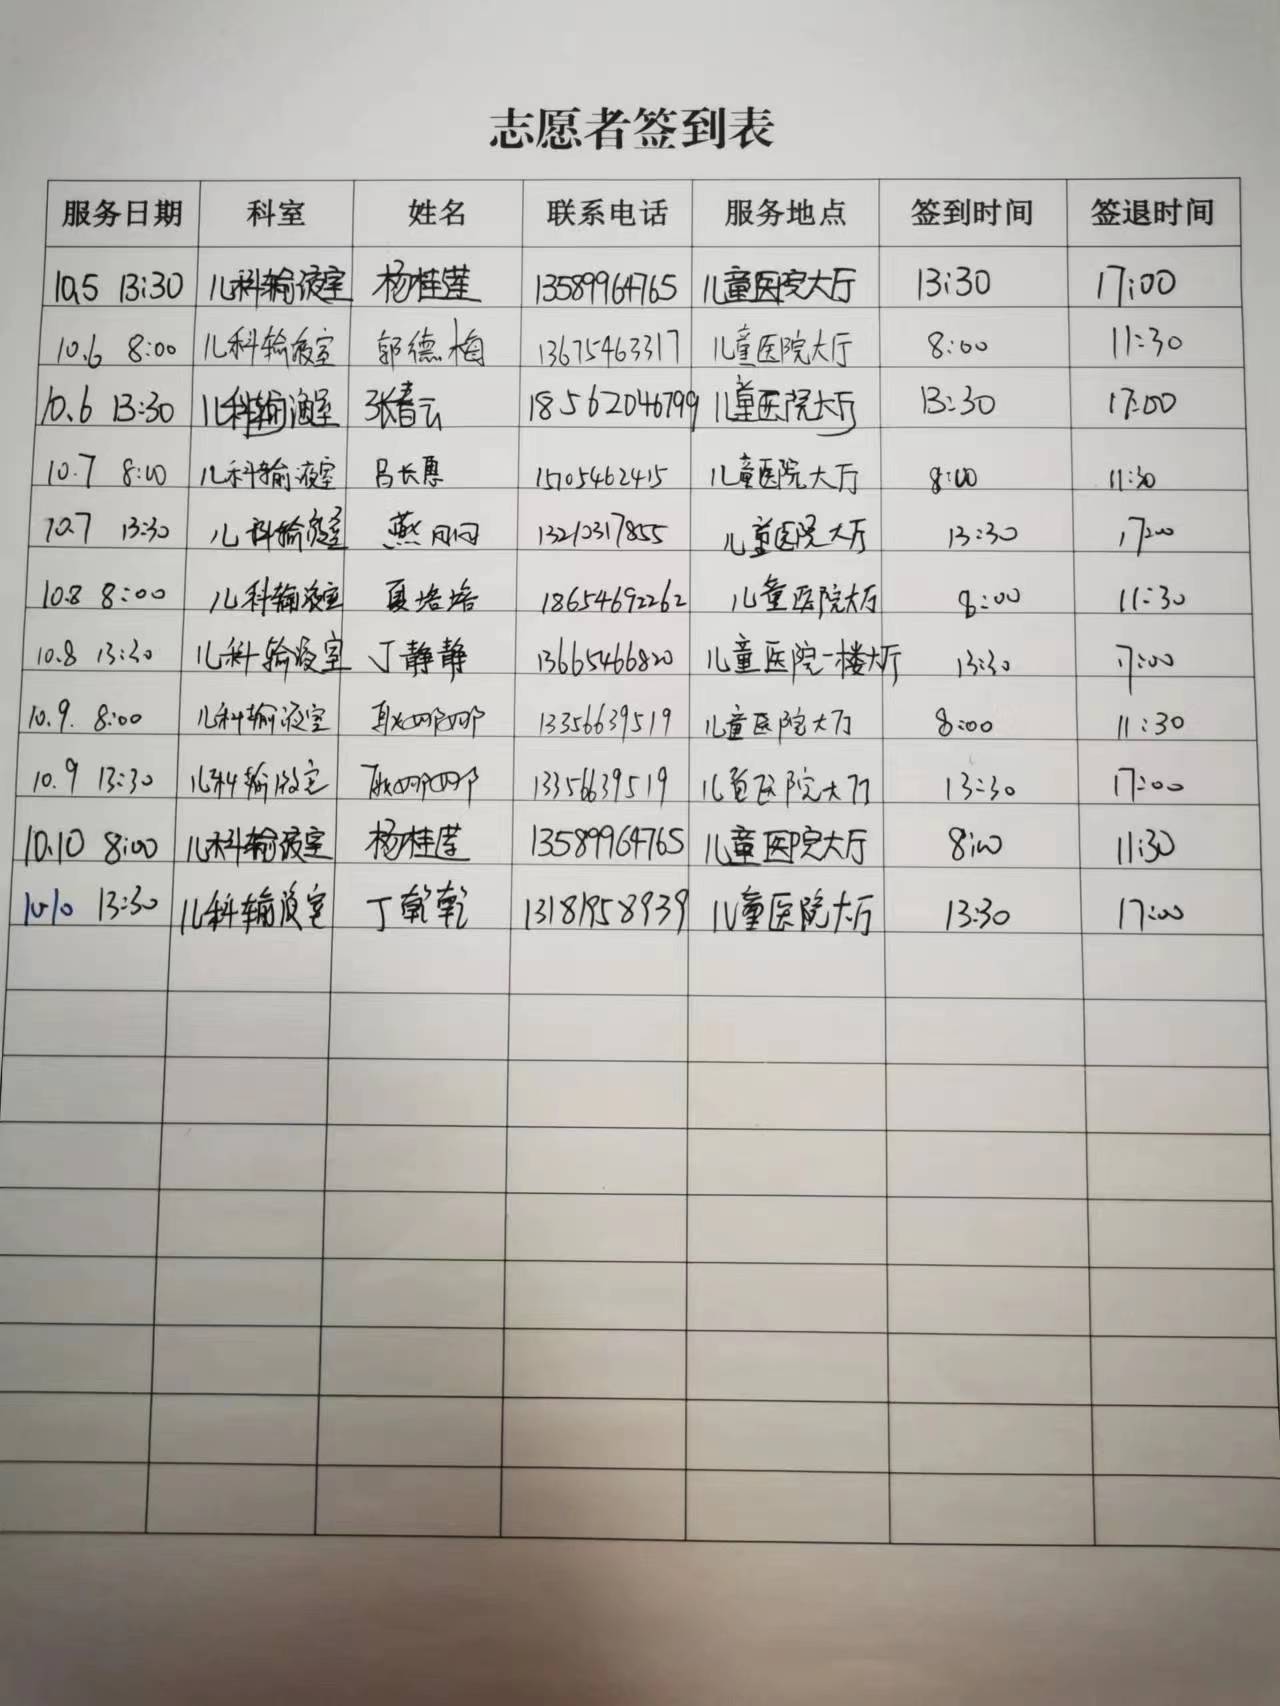 志愿者签到表
服务日期 科室 姓名 联系电话 服务地点 签到时间 签退时间
10.5 13:30 儿科输液室 杨桂莲 13589964765 儿童医院大厅 13:30 17:00
10.6 8:00 儿科输液室 郭德梅 13675463317 儿童医院大厅 8:00 11:30
10.6 13:30 儿科输液室 张春云 18562046799 儿童医院大厅 13:30 17:00
10.7 8:00 儿科输液室 吕长惠 15705462415 儿童医院大厅 8:00 11:30
10.7 13:30 儿科输液室 燕 13210317855 儿童医院大厅 13:30 17:00
10.8 8:00 儿科输液室 夏培培 18654692262 儿童医院大厅 8:00 11:30
10.8 13:30 儿科输液室 丁静静 13665466820 儿童医院一楼大厅 13:30 17:00
10.9. 8:00 儿科输液室 耿娜娜 13356639519 儿童医院大厅 8:00 11:30
10.9 13:30 儿科输液室 耿娜娜 13356639519 儿童医院大厅 13:30 17:00
10.10 8:00 儿科输液室 杨桂莲 13589964765 儿童医院大厅 8:00 11:30
10.10 13:30 儿科输液室 丁乾乾 13181958939 儿童医院大厅 13:30 17:00